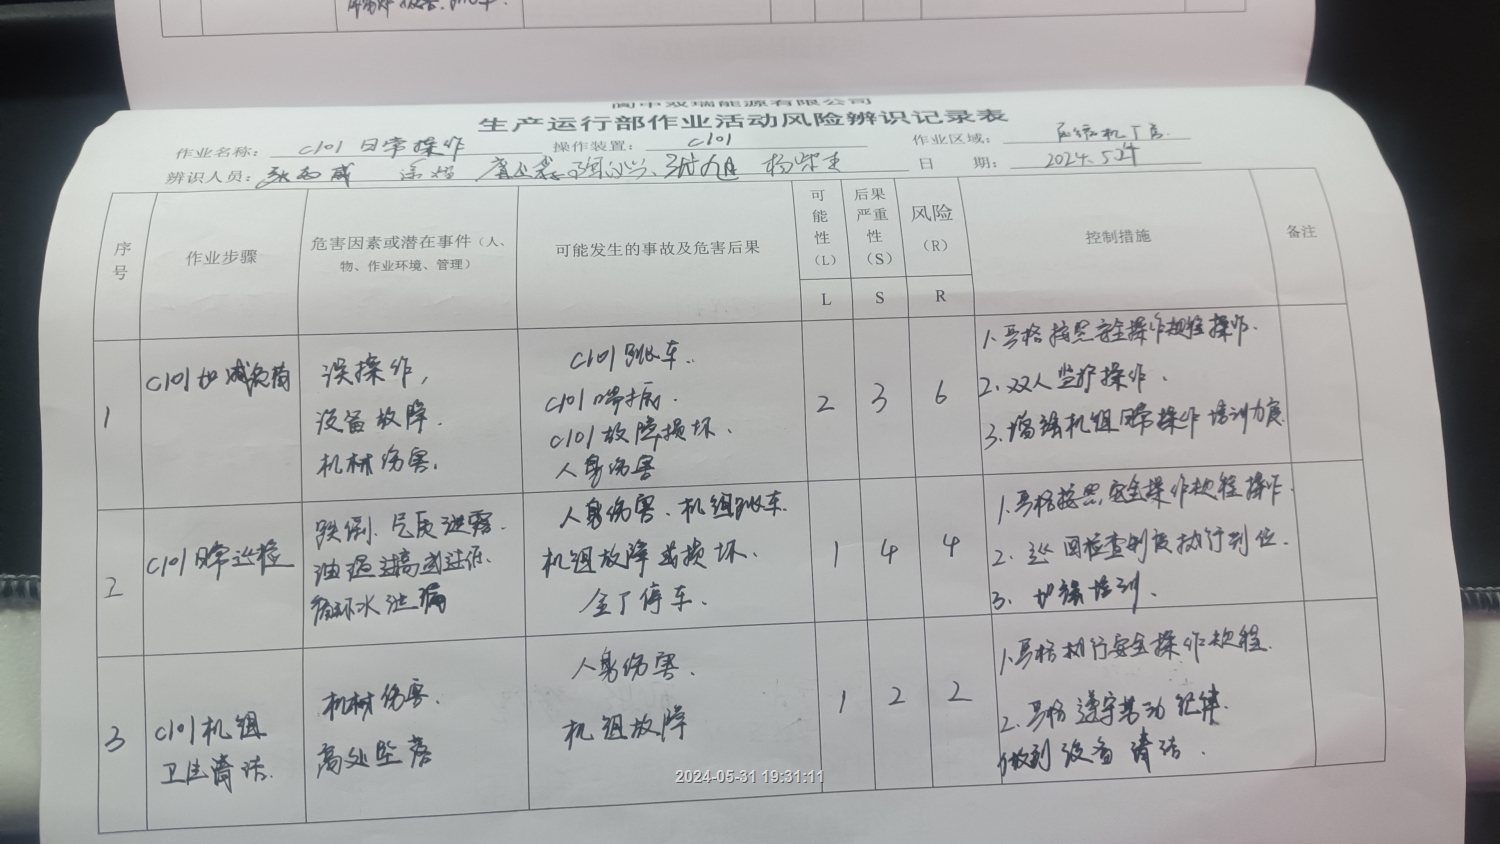 阆中双瑞能源有限公司
生产运行部作业活动风险辨识记录表
作业名称： C101日常操作 操作装置： C101 作业区域： 压缩机厂房
辨识人员： 日 期： 2024.5.24
序号 作业步骤 危害因素或潜在事件（人、物、作业环境、管理） 可能发生的事故及危害后果 可能性（L） 后果严重性（S） 风险（R） 控制措施 备注
L S R
1 C101加减负荷
误操作，
设备故障.
机材伤害.
C101跳车.
C101喘振.
C101故障损坏.
人身伤害
2 3 6
1.严格按照安全操作规程操作.
2.双人监护操作.
3.增强机组日常操作培训力度
2 C101日常巡检
跌倒.气质泄露.
油温过高或过低.
循环水泄漏
人身伤害.机组跳车.
机组故障或损坏.
全厂停车.
1 4 4
1.严格按照安全操作规程操作.
2.巡回检查制度执行到位.
3.加强培训.
3 C101机组
卫生清洁.
机材伤害.
高处坠落
人身伤害.
机组故障
1 2 2
1.严格执行安全操作规程.
2.严格遵守劳动纪律.
做到设备清洁.
2024-05-31 19:31:11